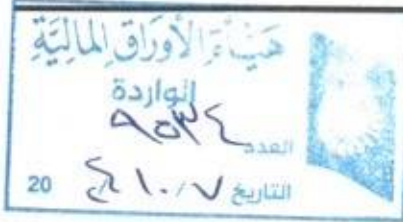 هَيْئَةُ الأَوْرَاقِ المَالِيَّةِ
الواردة
العدد ٩٥٣٤
التاريخ 20